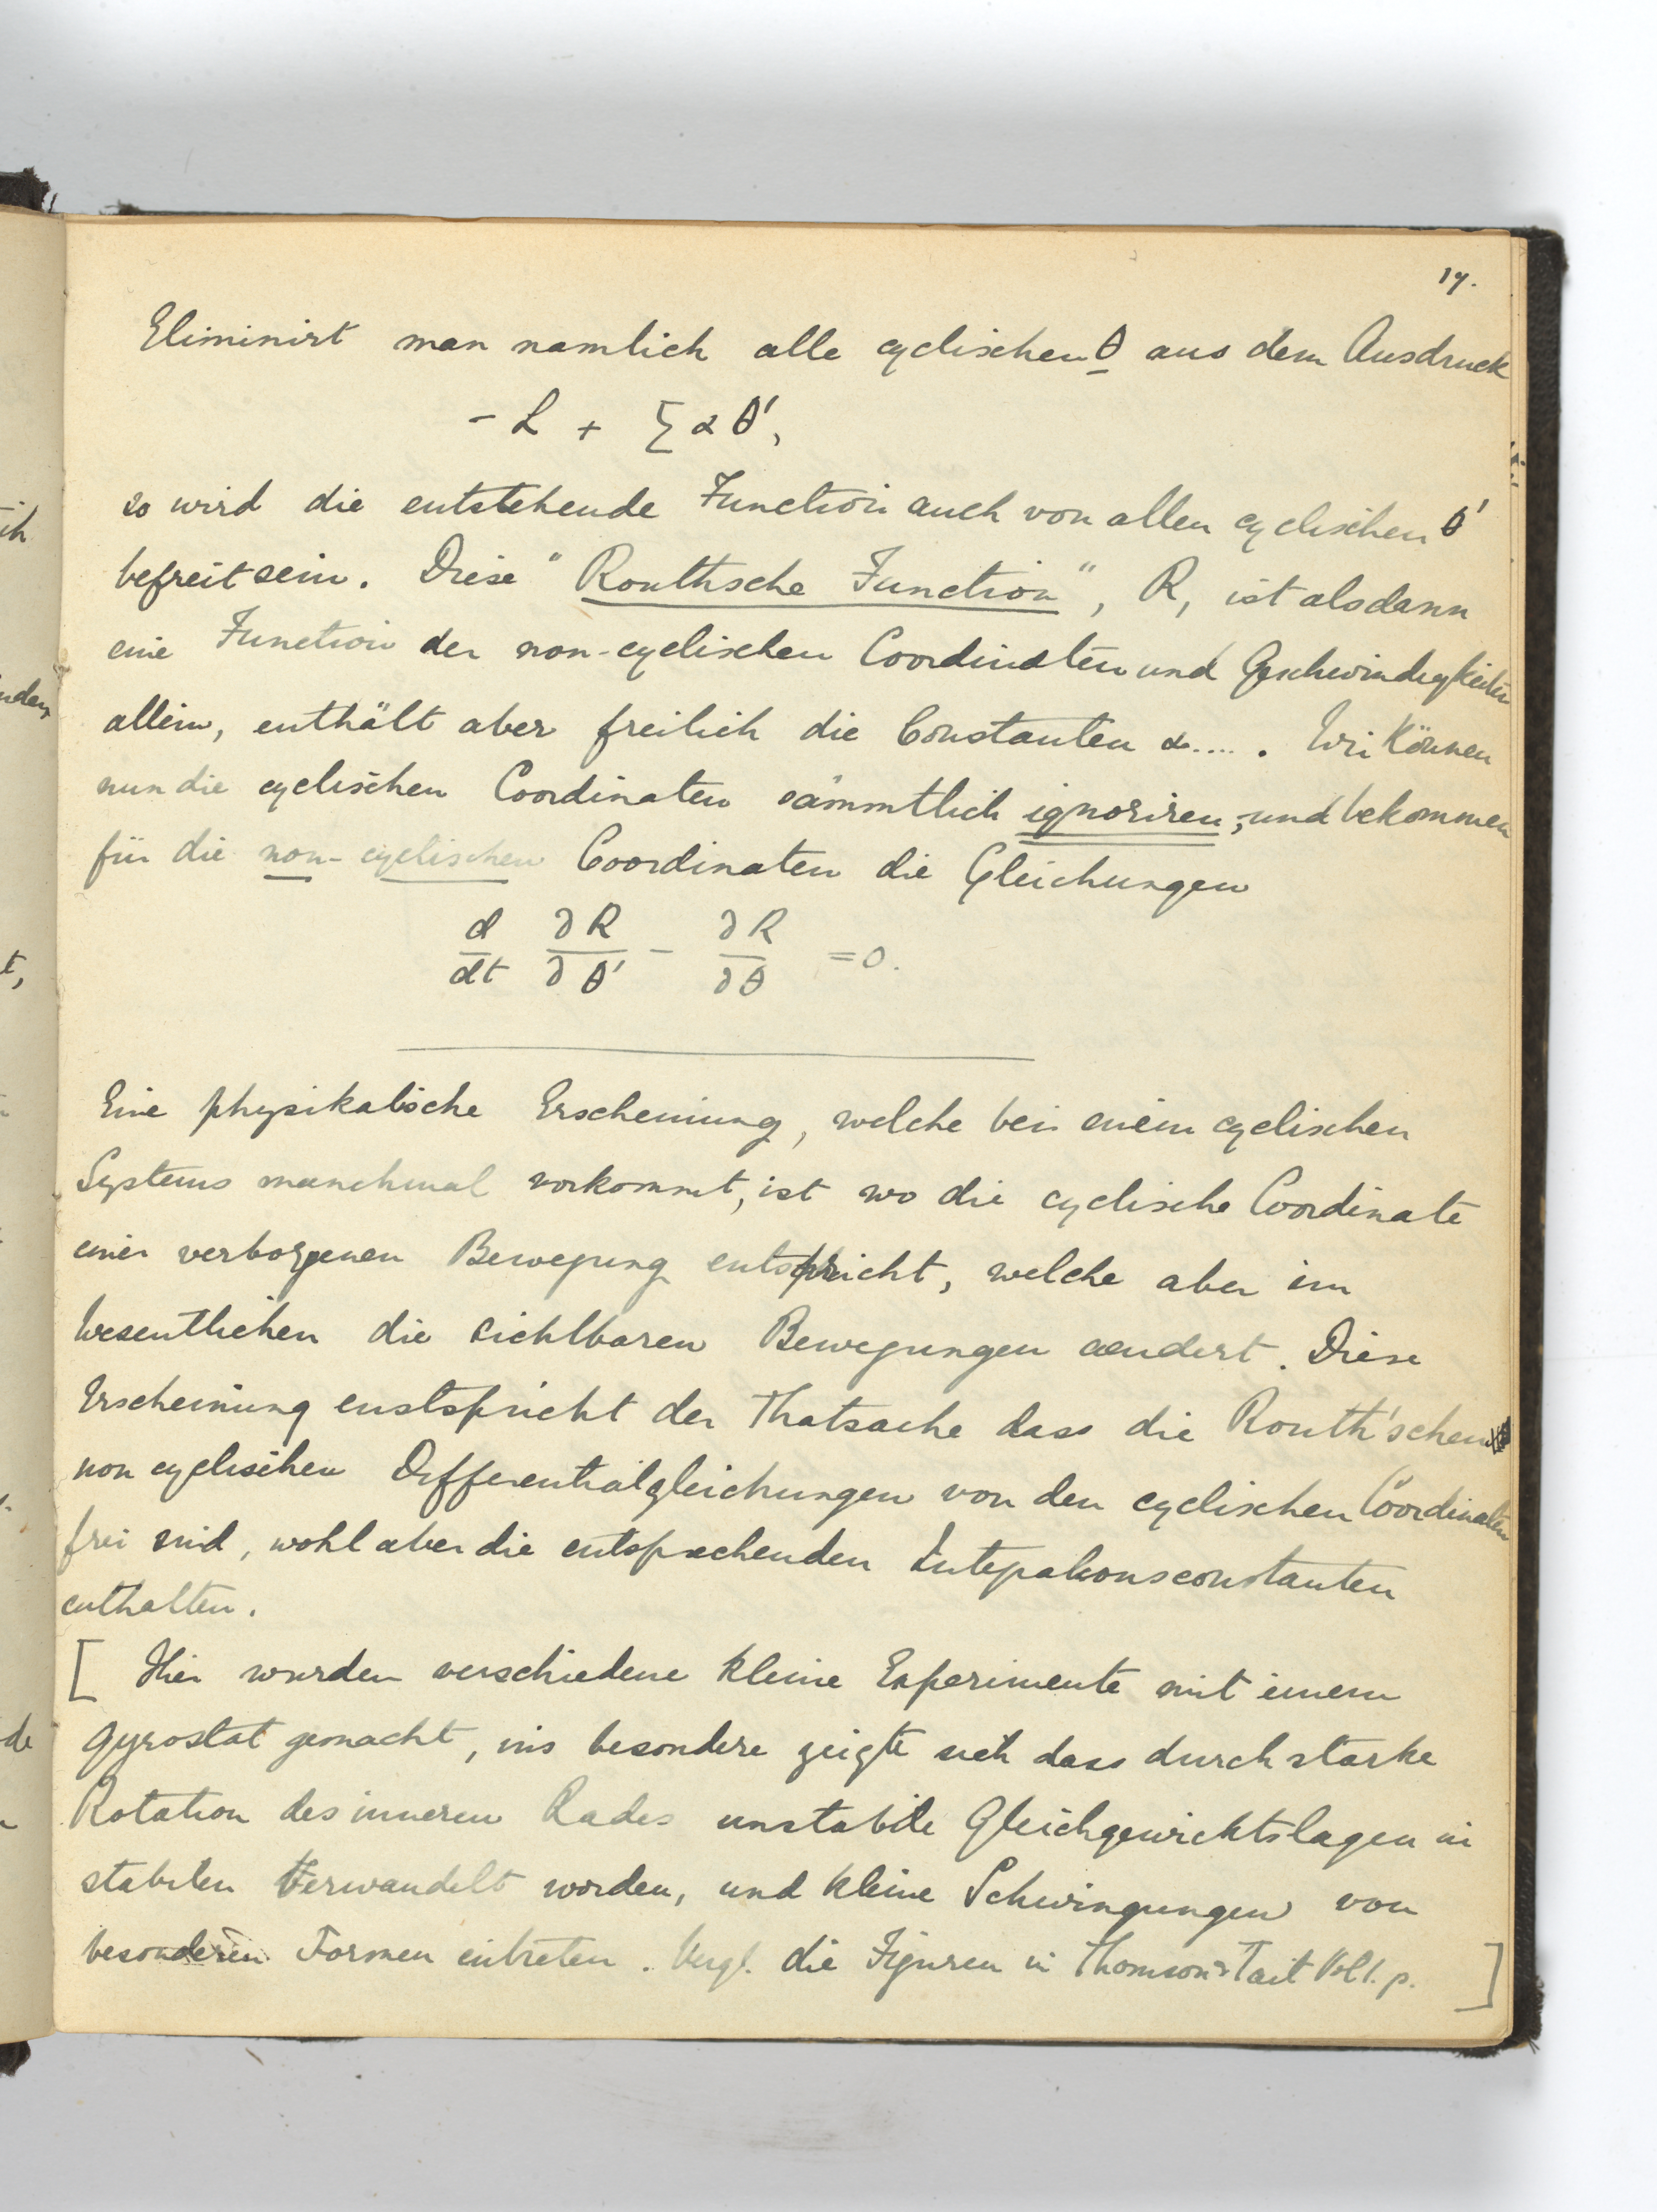 17.
Eliminirt man namlich alle cyclischen θ aus dem Ausdruck
- L + Σ α θ',
so wird die entstehende Function auch von allen cyclischen θ'
befreit sein. Diese "Routhsche Function", R, ist alsdann
eine Function der non-cyclischen Coordinaten und Geschwindigkeiten
allein, enthält aber freilich die Constanten α..... Wir können
nun die cyclischen Coordinaten sämmtlich ignoriren, und bekommen
für die non-cyclischen Coordinaten die Gleichungen
d/dt ∂R/∂θ' - ∂R/∂θ = 0.
Eine physikalische Erscheinung, welche bei einem cyclischen
Systems manchmal vorkommt, ist wo die cyclische Coordinate
einer verborgenen Bewegung entspricht, welche aber im
wesentlichen die sichtbaren Bewegungen aendert. Diese
Erscheinung enstspricht der Thatsache dass die Routh'schen
non cyclischen Differentialgleichungen von den cyclischen Coordinaten
frei sind, wohl aber die entsprechenden Integrationsconstanten
enthalten.
[ Hier wurden verschiedene kleine Experimente mit einem
Gyrostat gemacht, ins besondere zeigte sich dass durch starke
Rotation des inneren Rades unstabile Gleichgewichtslagen in
stabilen Verwandelt worden, und kleine Schwingungen von
besonderen Formen eintreten. Vergl. die Figuren in Thomson & Tait Vol 1. p. ]
ih
t,
de